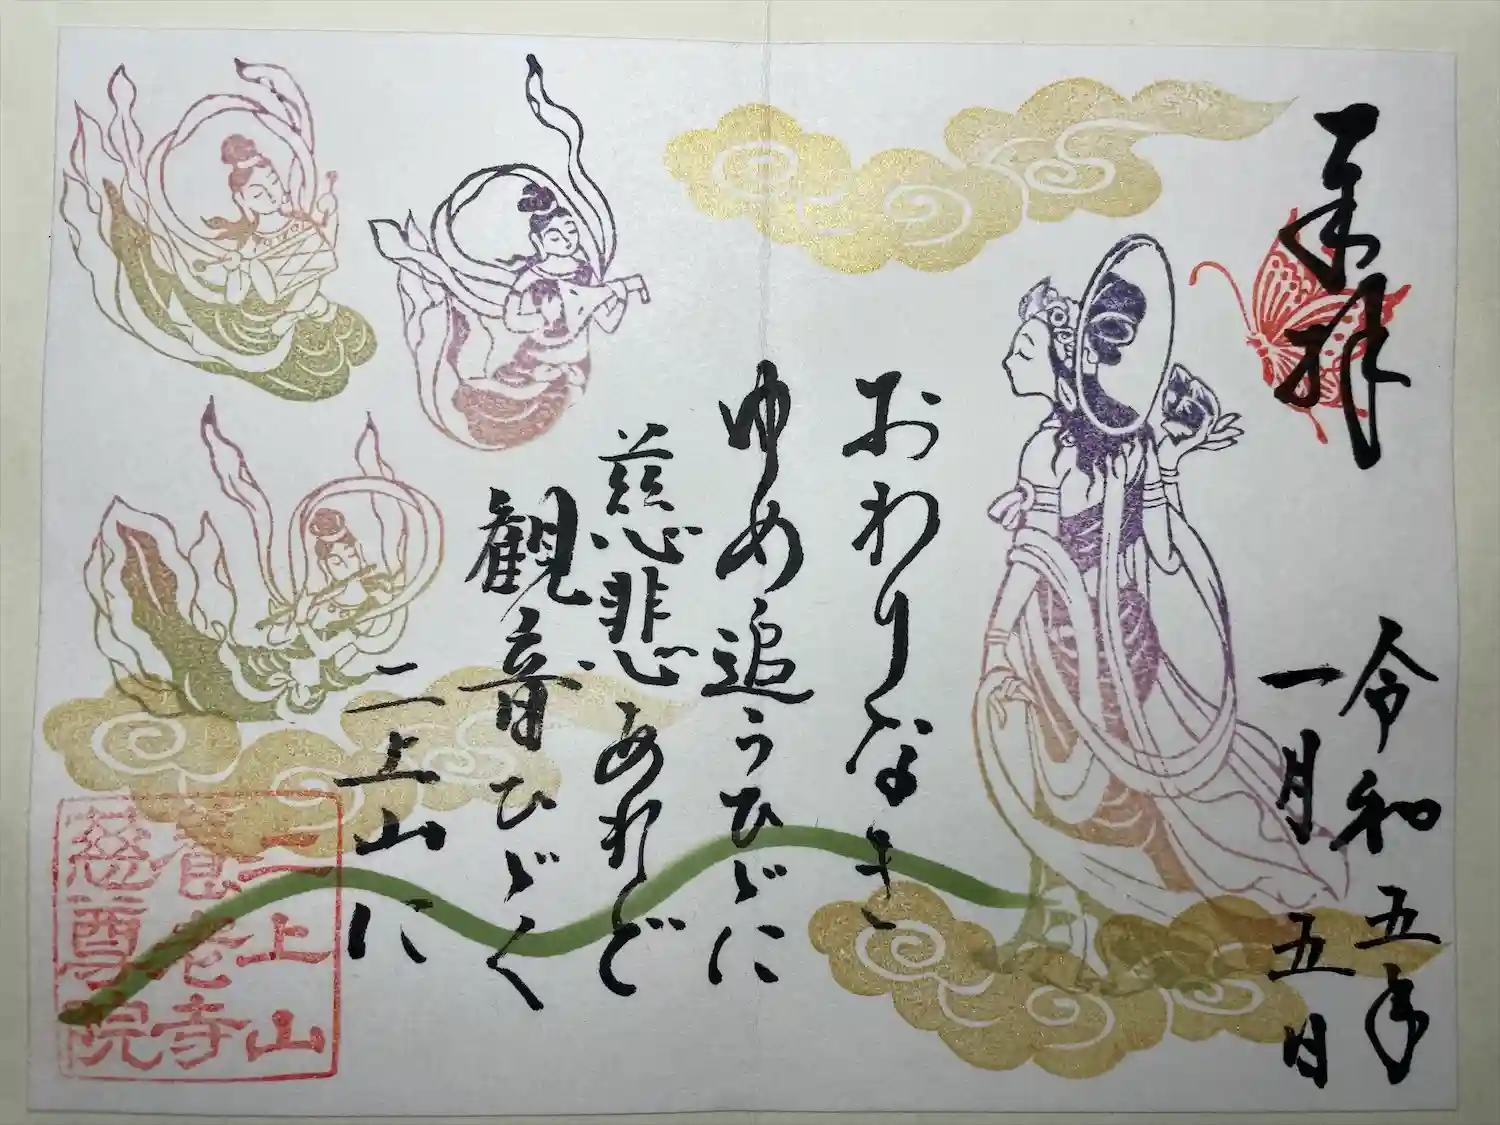 奉拝
令和五年
一月五日
おわりなき
ゆめ追うひびに
慈悲あれど
観音ひびく
二上山に
二上山
養老寺
慈尊院